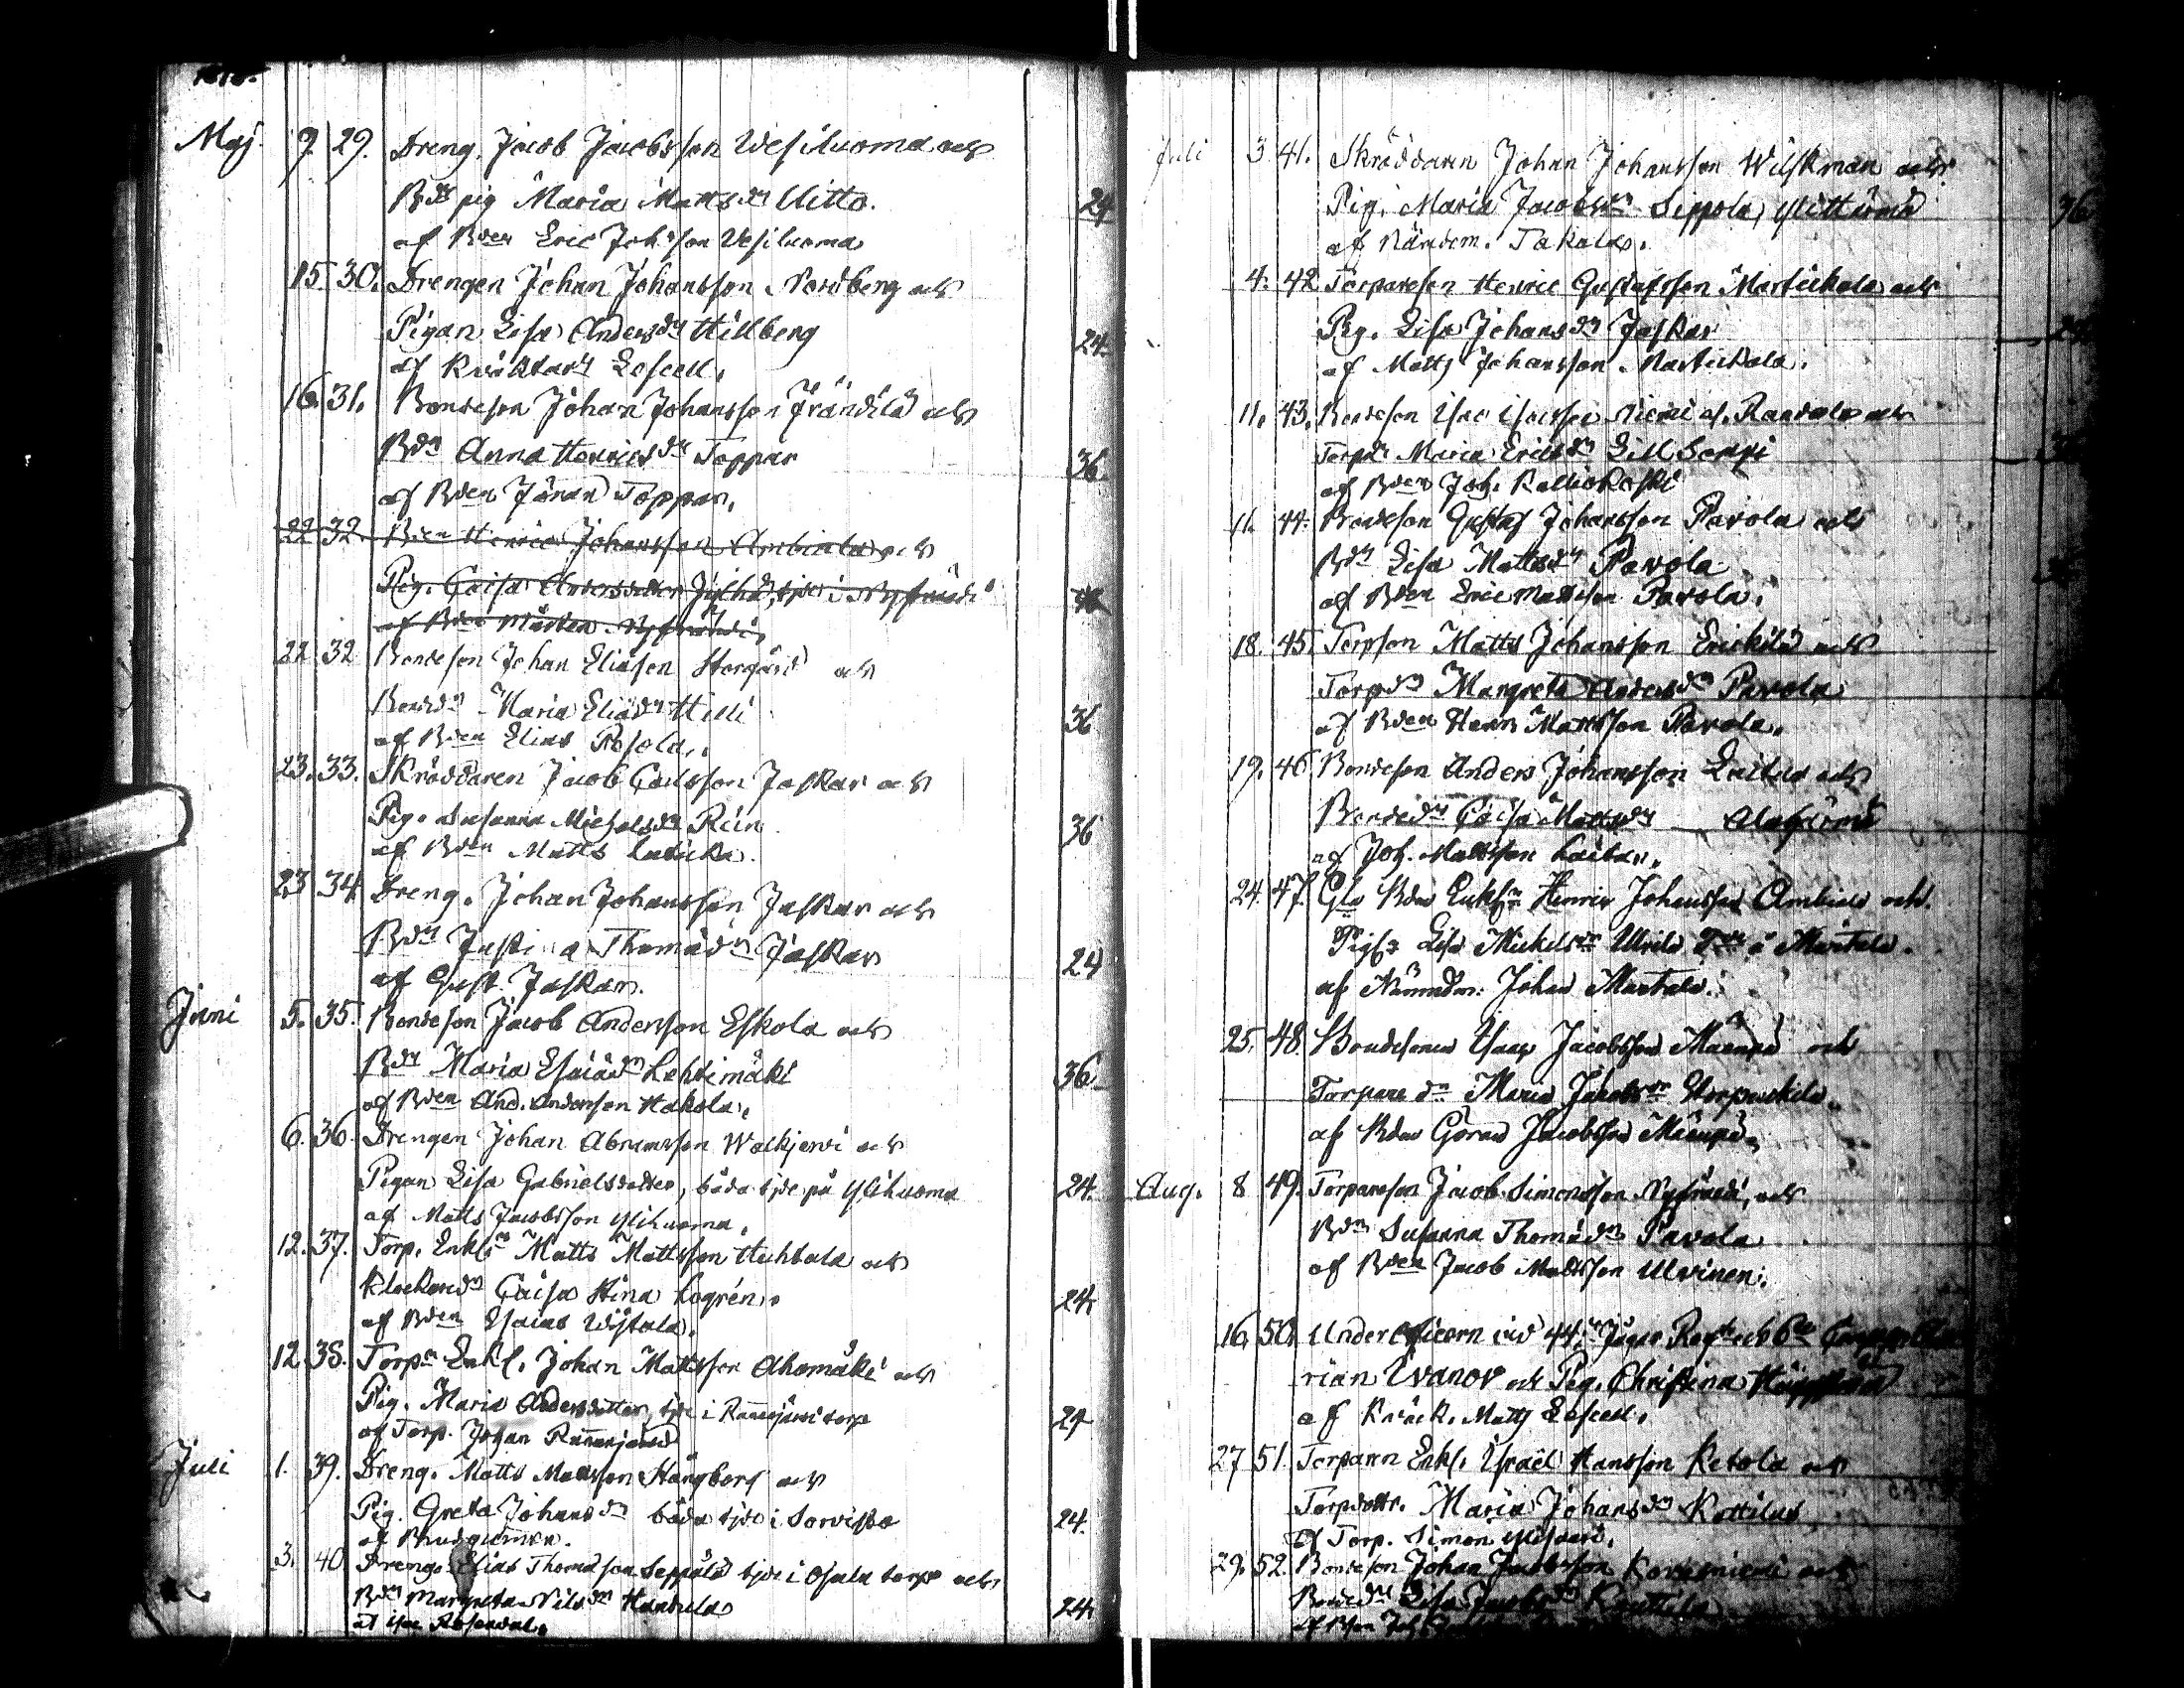 Maj. 9. 29. Dreng. Jacob Jacobsson Wesiluoma och
Bds pig Maria Mattsdr Uitto. 24
af Bden Eric Johsson Vesiluoma
15. 30. Drengen Johan Johansson Nordberg och
Pigan Lisa Andersdr Hillberg 24
af Loscell.
16. 31. Bondeson Johan Johansson Frändilä och
Bdr Anna Henricsdr Toppar 36.
af Bden Jöran Toppar.
22 32. Bden Henric Johansson Ambiala och
Pig. Caisa Andersdotter Jylhä, tjen i Nyfrändi
af Bden Mårten Nyfrändi,
22 32 Bondeson Johan Eliasson Storgård och
Bondedr Maria Eliædr Hilli 36
af Bden Elias Pesola.
23. 33. Skräddaren Jacob Carlsson Jaskar och
Pig. Susanna Michelsdr Rein 36
af Bden Matts
23 34 Dreng. Johan Johansson Jaskar och
Bdr Justina Thomædr Jaskar 24
af Gust. Jaskar.
Juni 5. 35. Bondeson Jacob Andersson Eskola och
Bdr Maria Esaiædr Lehtimäki 36
af Bden And. Andersson Hakola.
6. 36. Drengen Johan Abramsson Walkjervi och
Pigan Lisa Gabrielsdotter, båda tjde på Ylihuoma 24.
af Matts Jacobsson Ylihuoma.
12. 37. Torp. Enkl. Matts Mattsson Huhtala och
Klockaredr Caisa Stina Logrén. 24.
af Bden Esaias
12. 38. Torpn Enkl. Johan Mattsson Ahomäki och
Pig. Maria Andersdotter, tjn i Rannanjärvi torp 24
af Torp. Johan Rannanjärvi
Juli 1. 39. Dreng. Matts Mattsson Hängberg och
Pig. Greta Johansdr båda tjde i Sorvisto 24.
af Brudgummen.
3. 40. Dreng Elias Thomasson Seppälä tjde i Ojala torp och
Bdr Margreta Nilsdr Hantula 24.
af Isac Rosendal.
Juli 3. 41. Skräddaren Johan Johansson Wilskman och
Pig. Maria Jacobsdr Sippola, Ylittuoma 36
af Nämdem. Takala.
4. 42 Torpareson Henric Gustafsson Martickala och
Pig. Lisa Johansdr Jaskar 24
af Matts Johansson Martickala.
11. 43. Bondeson Isac Isacsson Niemi al. Randala och
Torpdr Maria Ericsdr Lill
af Bden Joh. Kalliokoski
11. 44. Bondeson Gustaf Johansson Pavola och
Bdr Lisa Mattsdr Pavola
af Bden Eric Mattsson Pavola.
18. 45. Torpson Matts Johansson Erickilä och
Torpdr Margreta Andersdr Pavola
af Bden Henr. Mattsson Pavola.
19. 46 Bondeson Anders Johansson Laitila och
Bondedr Caisa Mattsdr
af Joh. Mattsson
24. 47. Bden Enkln Henric Johansson Ambiala och
Lisa Mickelsdr Ulvila i Martala.
af Nämndm: Johan Martala.
25. 48. Bondesonen Isaac Jacobsson Mäenpä och
Torparedr Maria Jacobsdr
af Bden Göran Jacobsson Mäenpä,
Aug. 8 49. Torpareson Jacob Simonsson Nyfrändi, och
Bdr Susanna Thomædr Pavola
af Bden Jacob Mattsson Ulvinen.
16. 50. Under Officern vid 44: Jägar Regte och 6te
rian Ivanov och Pig. Christina
af Matts Loscell.
27 51. Torparen Enkl. Israël Hansson Ketola och
Torpdottr. Maria Johansdr Kottilus
af Torp. Simon
29. 52. Bondeson Johan Jacobsson och
Bondedr Lisa Jacobsdr